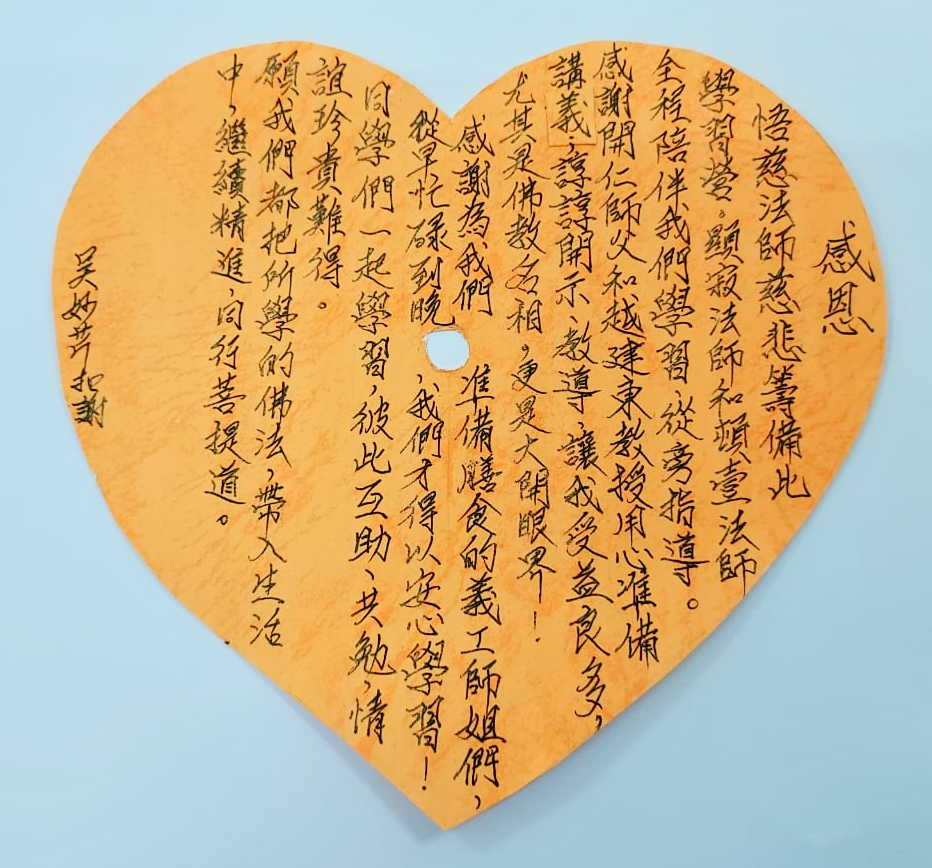 感恩
悟慈法師慈悲籌備此
學習營。顯寂法師和頓壹法師
全程陪伴我們學習、從旁指導。
感謝開仁師父和越建東教授用心準備
講義，諄諄開示、教導，讓我受益良多，
尤其是佛教名相，更是大開眼界！
感謝為我們準備膳食的義工師姐們，
從早忙碌到晚，我們才得以安心學習！
同學們一起學習，彼此互助、共勉，情
誼珍貴難得。
願我們都把所學的佛法，帶入生活
中，繼續精進，同行菩提道。
吳妙芹 扣謝